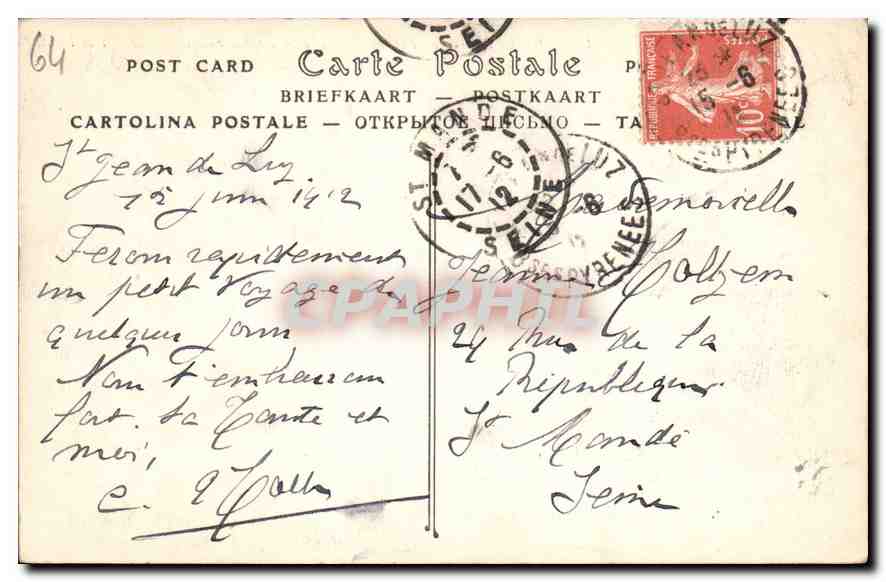 64
POST CARD
Carte Postale
BRIEFKAART — POSTKAART
CARTOLINA POSTALE — ОТКРЫТОЕ ПИСЬМО — TA
SEINE
ST MANDE
SEINE
17 6 12
REPUBLIQUE FRANÇAISE
POSTES
10c
15-6
BSES PYRENEES
LUZ
BSES PYRENEES
CPAPHIL
St Jean de Luz
15 Juin 1912
Ferons rapidement
un petit voyage de
quelques jours
Nous t'embrassons
fort. ta Tante et
moi,
Mademoiselle
Jeanne Holtzem
24 Rue de la
République
St Mandé
Seine